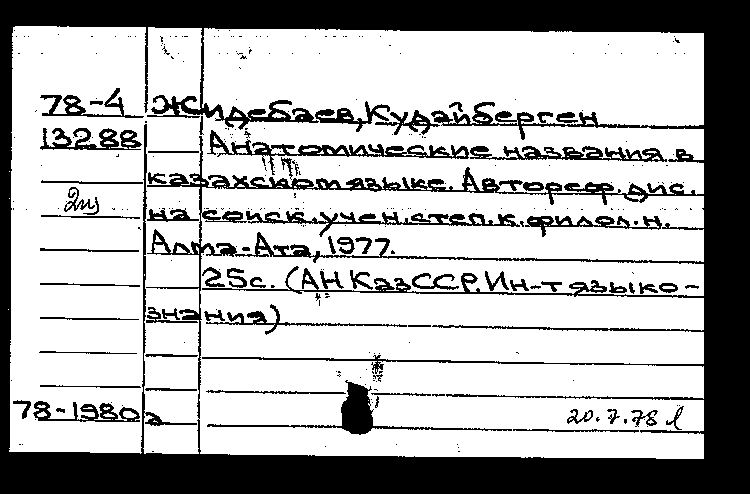 78-4 Жидебаев, Кудайберген
13288 Анатомические названия в
казахском языке. Автореф. дис.
на соиск. учен. степ. к. филол. н.
Алма-Ата, 1977.
25с. (АН КазССР. Ин-т языко-
знания)
78-1980а 20.7.78